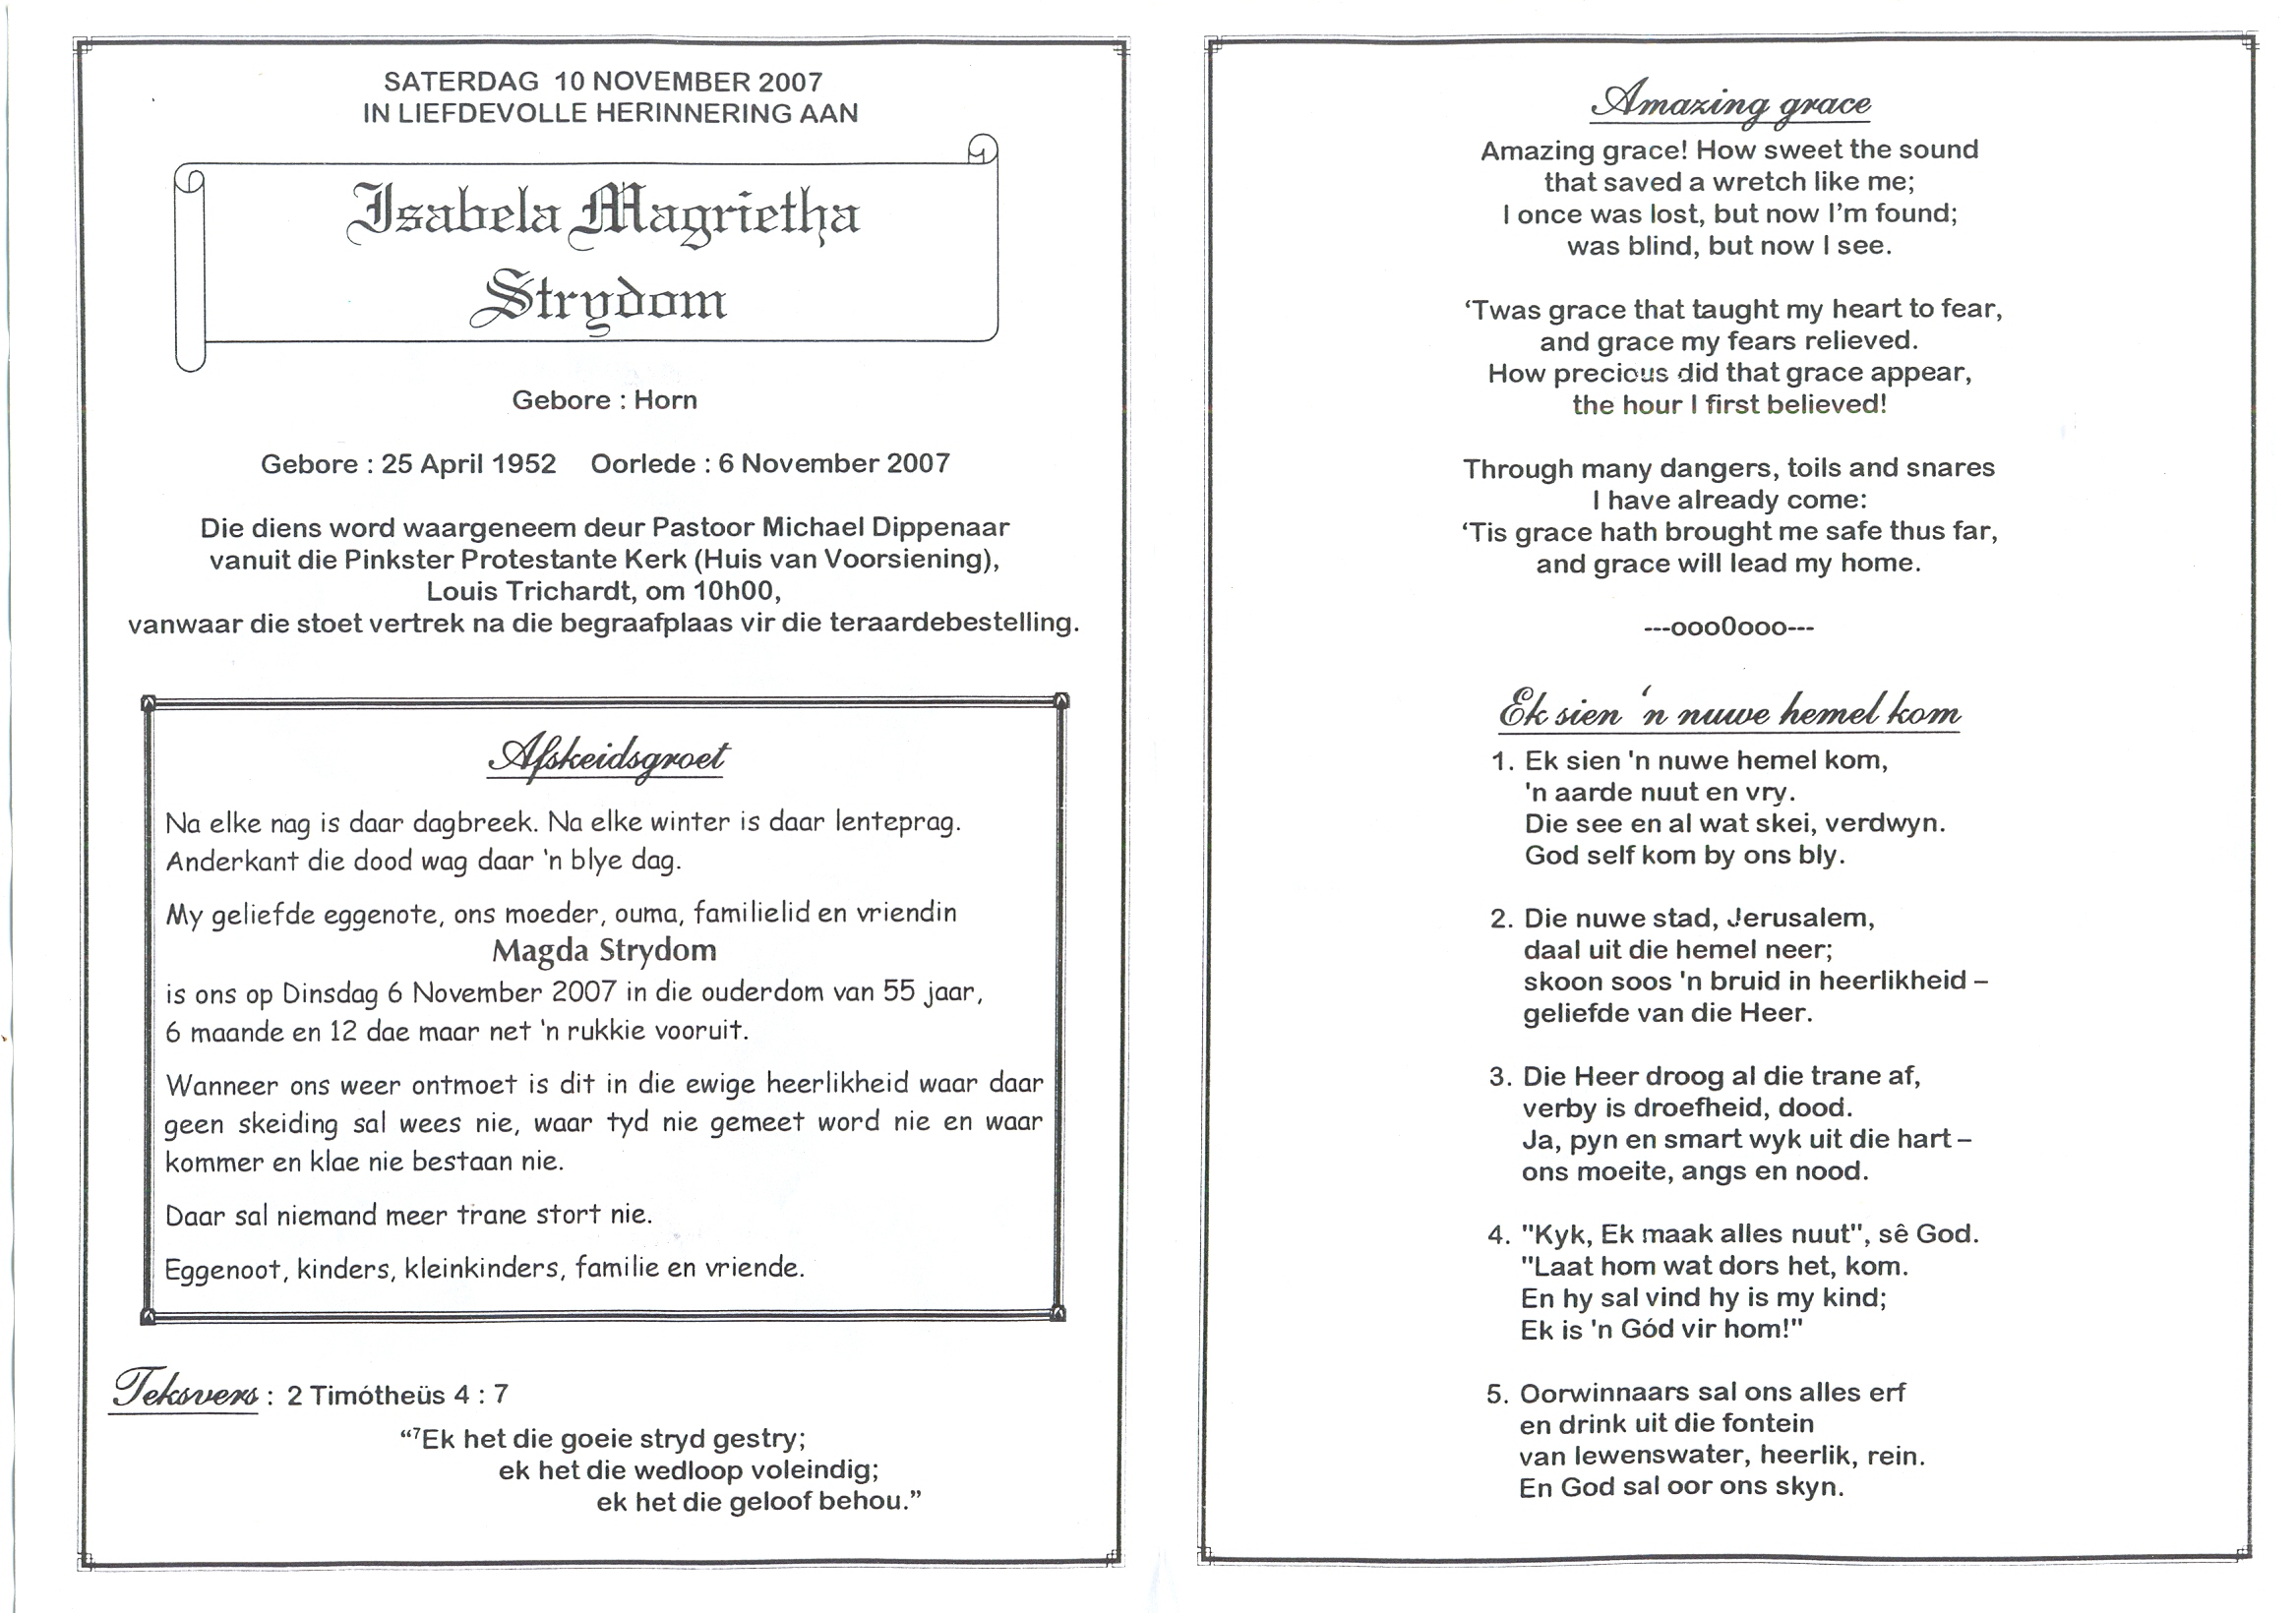 SATERDAG 10 NOVEMBER 2007
IN LIEFDEVOLLE HERINNERING AAN
Isabela Magrietha
Strydom
Gebore : Horn
Gebore : 25 April 1952 Oorlede : 6 November 2007
Die diens word waargeneem deur Pastoor Michael Dippenaar
vanuit die Pinkster Protestante Kerk (Huis van Voorsiening),
Louis Trichardt, om 10h00,
vanwaar die stoet vertrek na die begraafplaas vir die teraardebestelling.
Afskeidsgroet
Na elke nag is daar dagbreek. Na elke winter is daar lenteprag.
Anderkant die dood wag daar 'n blye dag.
My geliefde eggenote, ons moeder, ouma, familielid en vriendin
Magda Strydom
is ons op Dinsdag 6 November 2007 in die ouderdom van 55 jaar,
6 maande en 12 dae maar net 'n rukkie vooruit.
Wanneer ons weer ontmoet is dit in die ewige heerlikheid waar daar
geen skeiding sal wees nie, waar tyd nie gemeet word nie en waar
kommer en klae nie bestaan nie.
Daar sal niemand meer trane stort nie.
Eggenoot, kinders, kleinkinders, familie en vriende.
Teksvers : 2 Timótheüs 4 : 7
“⁷Ek het die goeie stryd gestry;
ek het die wedloop voleindig;
ek het die geloof behou.”
Amazing grace
Amazing grace! How sweet the sound
that saved a wretch like me;
I once was lost, but now I’m found;
was blind, but now I see.
‘Twas grace that taught my heart to fear,
and grace my fears relieved.
How precious did that grace appear,
the hour I first believed!
Through many dangers, toils and snares
I have already come:
‘Tis grace hath brought me safe thus far,
and grace will lead my home.
---ooo0ooo---
Ek sien ‘n nuwe hemel kom
1. Ek sien 'n nuwe hemel kom,
'n aarde nuut en vry.
Die see en al wat skei, verdwyn.
God self kom by ons bly.
2. Die nuwe stad, Jerusalem,
daal uit die hemel neer;
skoon soos 'n bruid in heerlikheid –
geliefde van die Heer.
3. Die Heer droog al die trane af,
verby is droefheid, dood.
Ja, pyn en smart wyk uit die hart –
ons moeite, angs en nood.
4. "Kyk, Ek maak alles nuut", sê God.
"Laat hom wat dors het, kom.
En hy sal vind hy is my kind;
Ek is 'n Gód vir hom!"
5. Oorwinnaars sal ons alles erf
en drink uit die fontein
van lewenswater, heerlik, rein.
En God sal oor ons skyn.